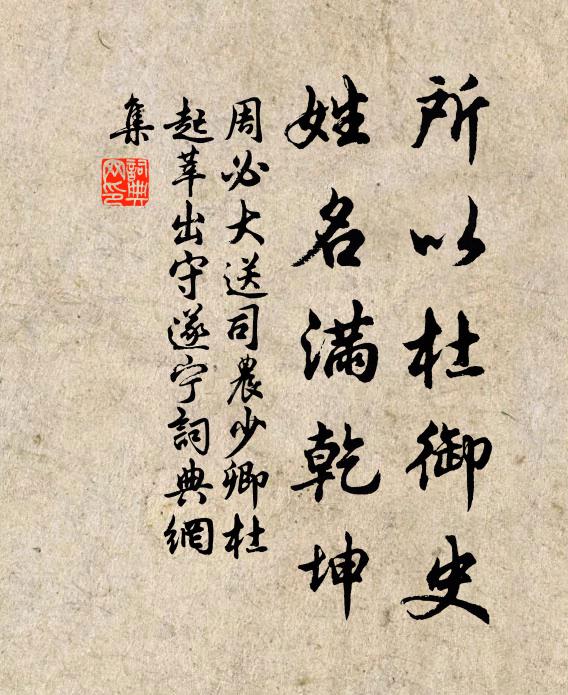 所以杜御史
姓名满乾坤
周必大送司農少卿杜
起莘出守遂宁詞典網
集
詞典網印